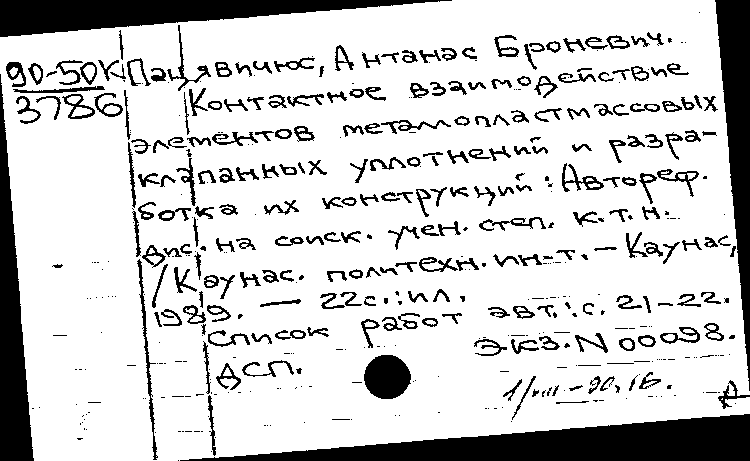 90-50К Пацявичюс, Антанас Броневич.
3786 Контактное взаимодействие
элементов металлопластмассовых
клапанных уплотнений и разра-
ботка их конструкций: Автореф.
дис. на соиск. учен. степ. к.т.н.
/Каунас. политехн. ин-т. - Каунас,
1989. — 22с.: ил.
Список работ авт.: с. 21-22.
ДСП. Экз. N 00098.
1/VIII-90.